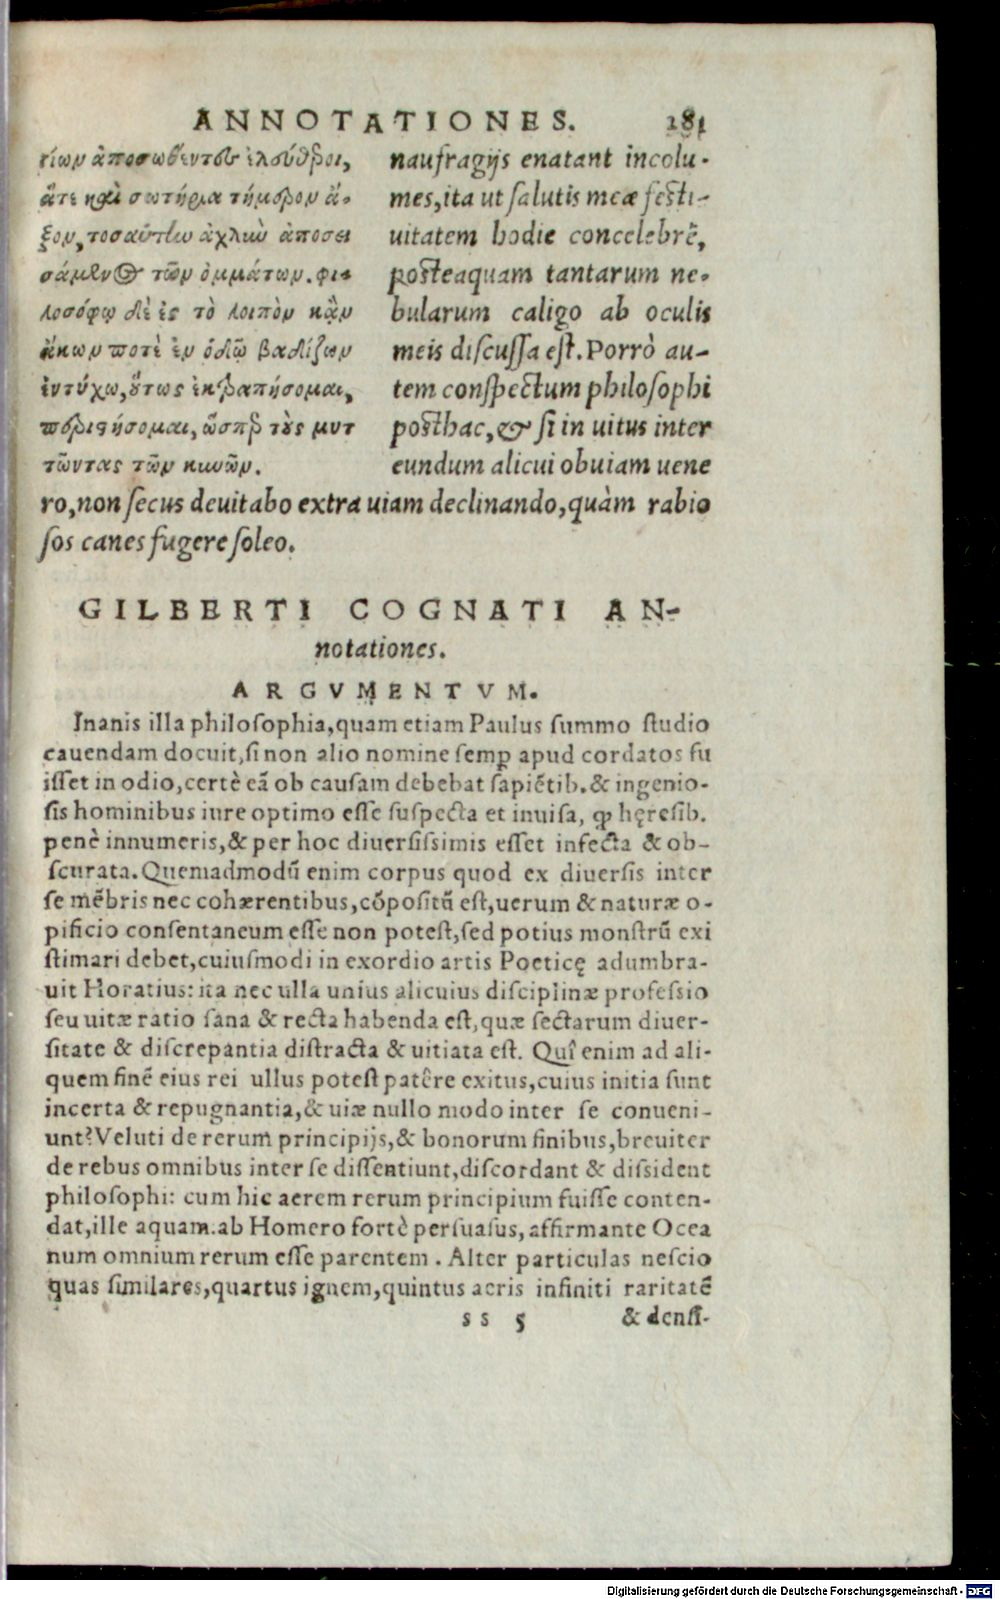 ANNOTATIONES. 181
γίων ἀποσωθέντες ἐλεύθεροι,
ἅτε καὶ σωτήρια τήμερον ἄ-
ξων, τοσαύτην ἀχλὺν ἀποσει
σάμενος τῶν ὀμμάτων. φι-
λοσόφῳ δὲ ἐς τὸ λοιπὸν κἂν
ἄκων ποτὲ ἐν ὁδῷ βαδίζων
ἐντύχω, οὕτως ἐκτραπήσομαι,
περιστήσομαι, ὥσπερ τοὺς λυτ
τῶντας τῶν κυνῶν.
naufragijs enatant incolu-
mes, ita ut salutis meæ festi-
uitatem hodie concelebrē,
posteaquam tantarum ne-
bularum caligo ab oculis
meis discussa est. Porrò au-
tem conspectum philosophi
posthac, & si in uitus inter
eundum alicui obuiam uene
ro, non secus deuitabo extra uiam declinando, quàm rabio
sos canes fugere soleo.
GILBERTI COGNATI AN-
notationes.
ARGVMENTVM.
Inanis illa philosophia, quam etiam Paulus summo studio
cauendam docuit, si non alio nomine semꝑ apud cordatos fu
isset in odio, certè eā ob causam debebat sapiētib. & ingenio-
sis hominibus iure optimo esse suspecta et inuisa, ꝙ hęresib.
penè innumeris, & per hoc diuersissimis esset infecta & ob-
scurata. Quemadmodū enim corpus quod ex diuersis inter
se mēbris nec cohærentibus, cōpositū est, uerum & naturæ o-
pificio consentaneum esse non potest, sed potius monstrū exi
stimari debet, cuiusmodi in exordio artis Poeticę adumbra-
uit Horatius: ita nec ulla unius alicuius disciplinæ professio
seu uitæ ratio sana & recta habenda est, quæ sectarum diuer-
sitate & discrepantia distracta & uitiata est. Quî enim ad ali-
quem finē eius rei ullus potest patêre exitus, cuius initia sunt
incerta & repugnantia, & uiæ nullo modo inter se conueni-
unt? Veluti de rerum principijs, & bonorum finibus, breuiter
de rebus omnibus inter se dissentiunt, discordant & dissident
philosophi: cum hic aerem rerum principium fuisse conten-
dat, ille aquam: ab Homero fortè persuasus, affirmante Ocea
num omnium rerum esse parentem. Alter particulas nescio
quas similares, quartus ignem, quintus aeris infiniti raritatē
ss 5 & densi-
Digitalisierung gefördert durch die Deutsche Forschungsgemeinschaft - DFG